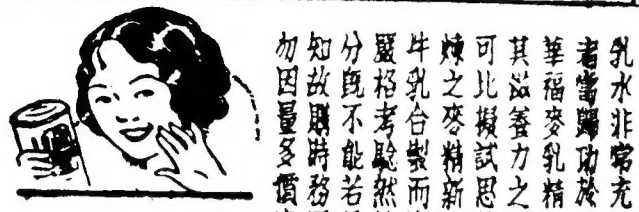 乳水非常充
者當歸功於
華福麥乳精
其滋養力之
可比擬試思
煉之麥精新
牛乳合製而
嚴格考驗然
分旣不能若
知故購時務
勿因量多價